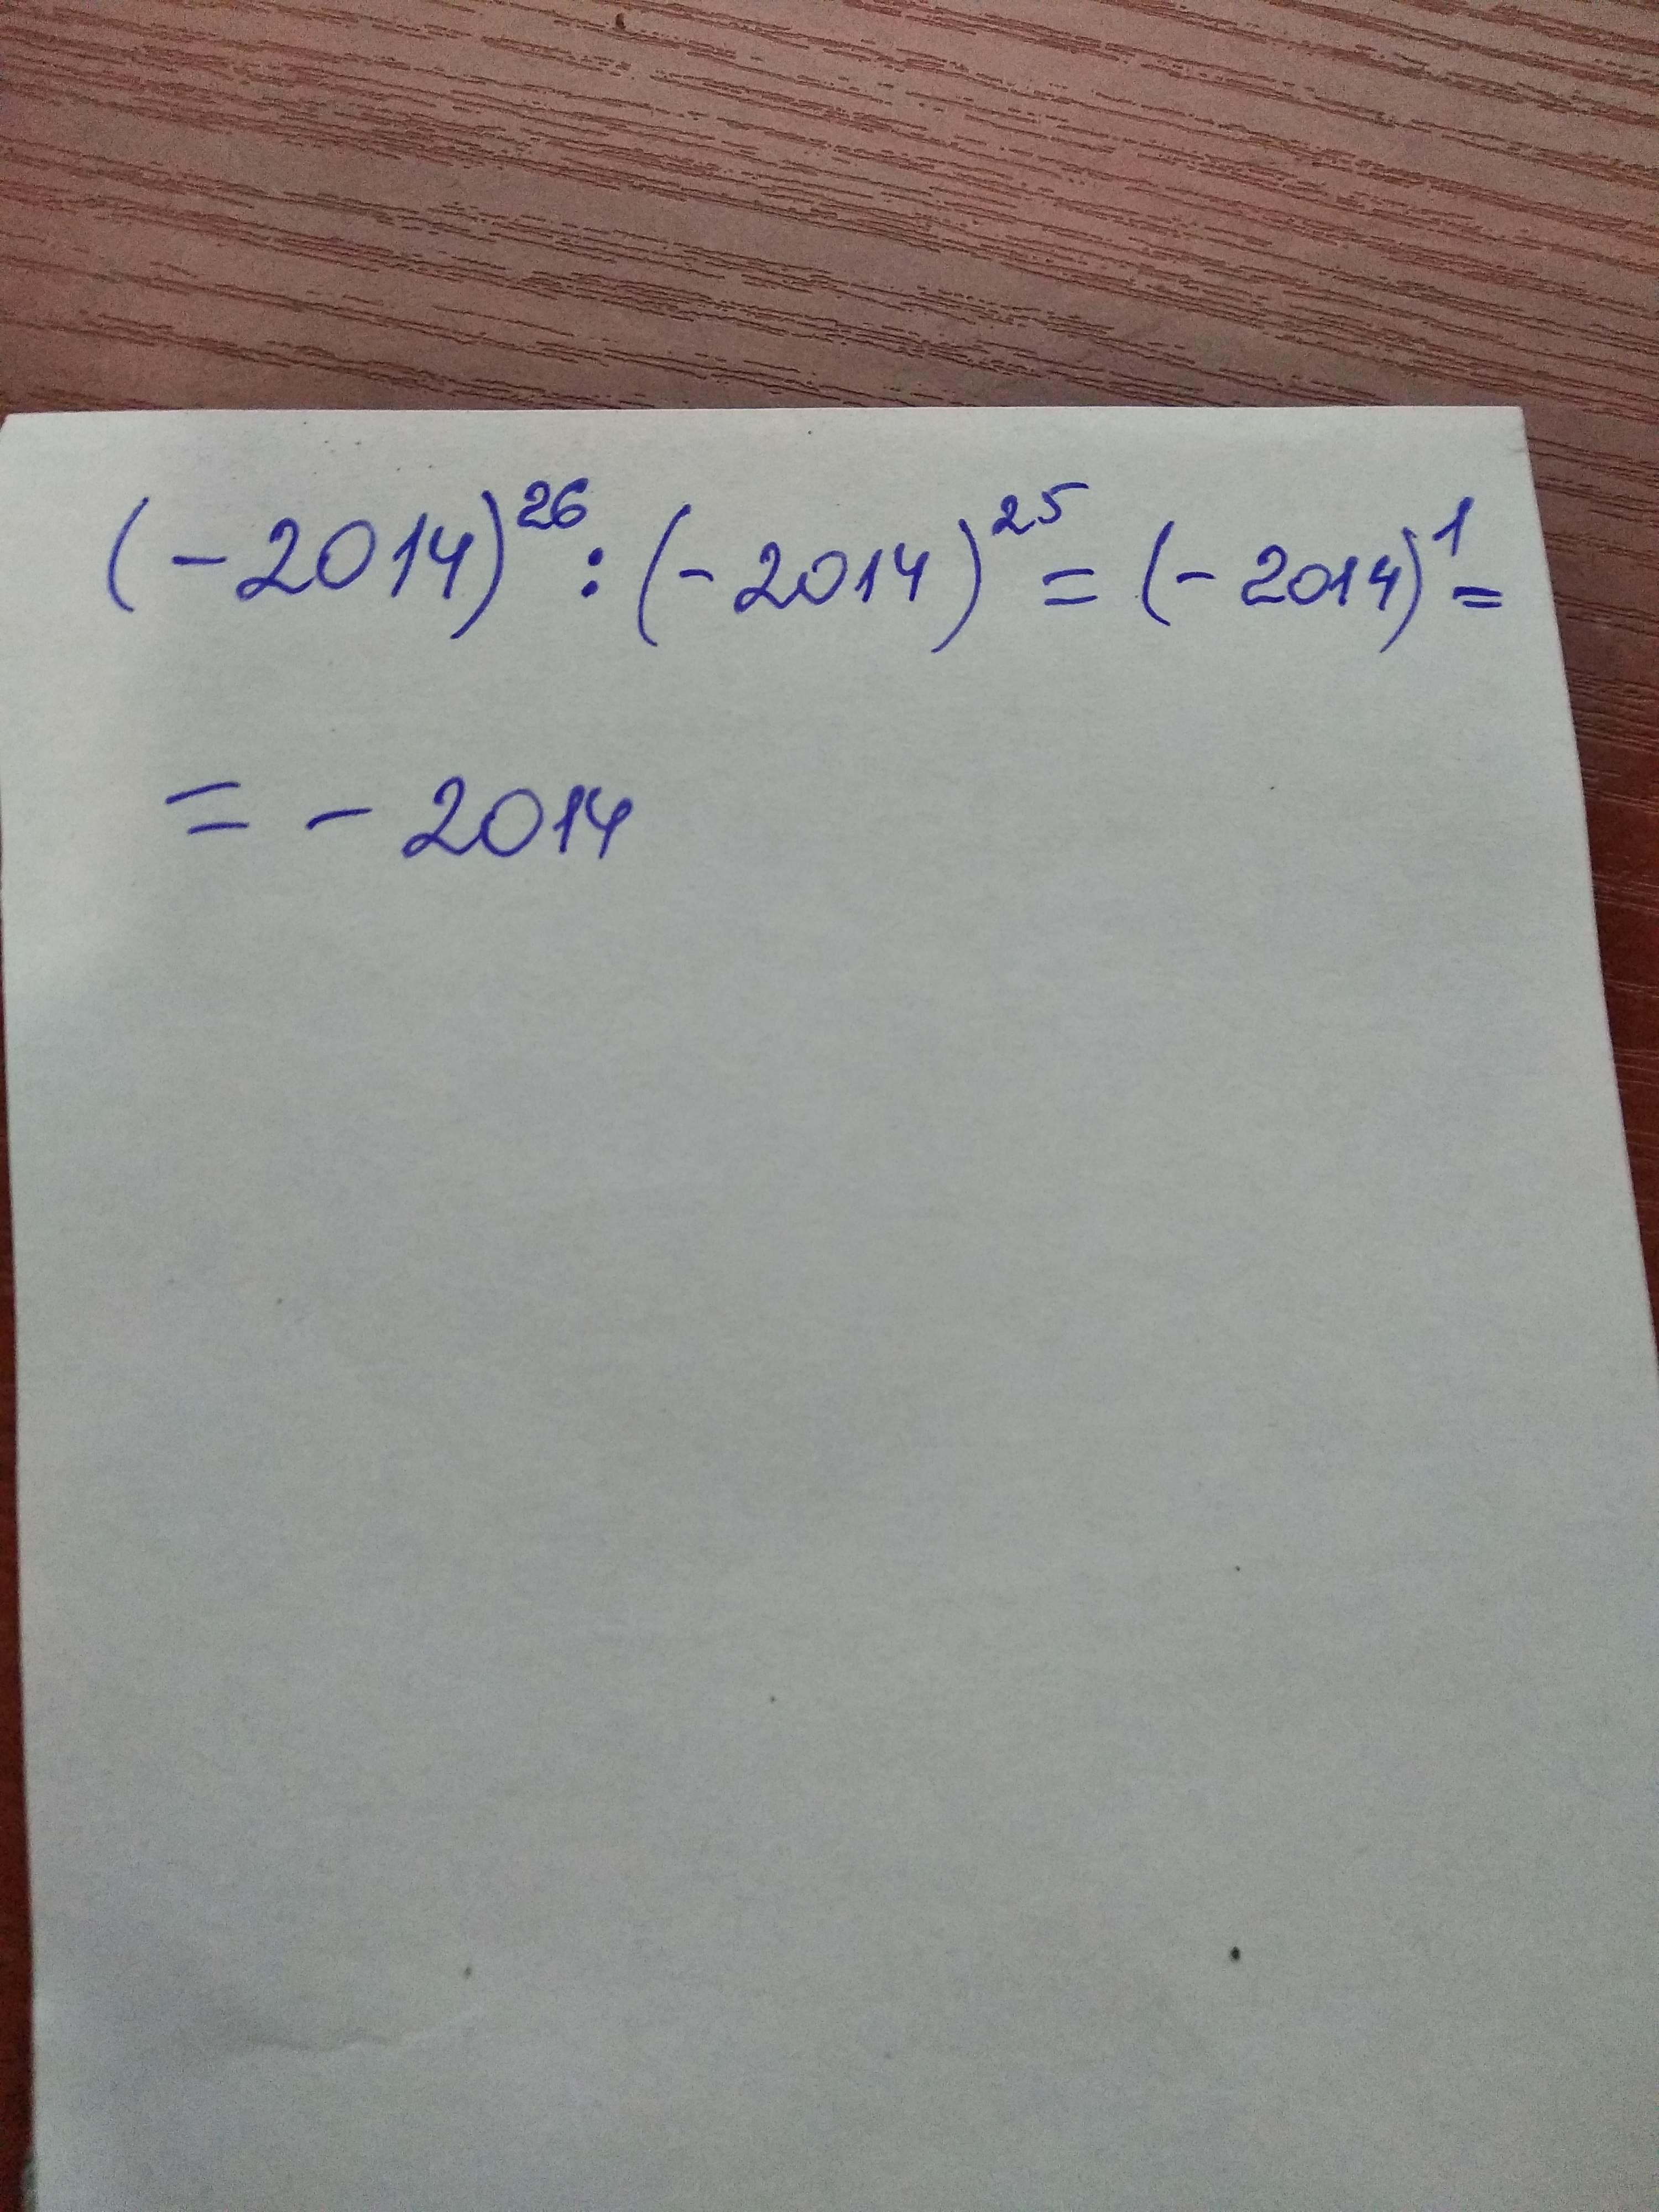 (-2014)^26 : (-2014)^25 = (-2014)^1 =
= - 2014